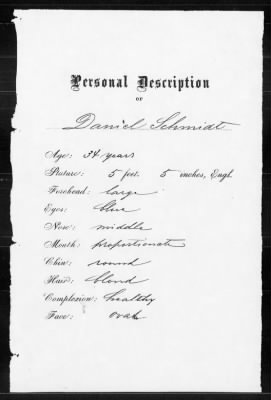 Personal Description
OF
Daniel Schmidt
Age: 34 years
Stature: 5 feet 5 inches, Engl.
Forehead: large
Eyes: blue
Nose: middle
Mouth: proportionate
Chin: round
Hair: blond
Complexion: healthy
Face: oval